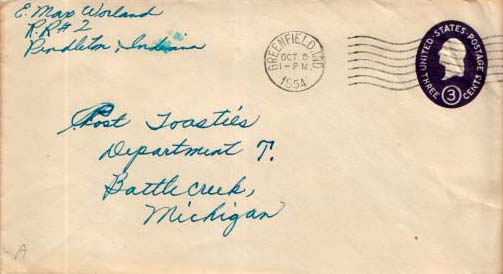 E. Max Worland
R.R#2
Pendleton, Indiana
GREENFIELD, IND
OCT 5
1-PM
1954
UNITED STATES POSTAGE
THREE 3 CENTS
Post Toasties
Department T.
Battlecreek,
Michigan
A